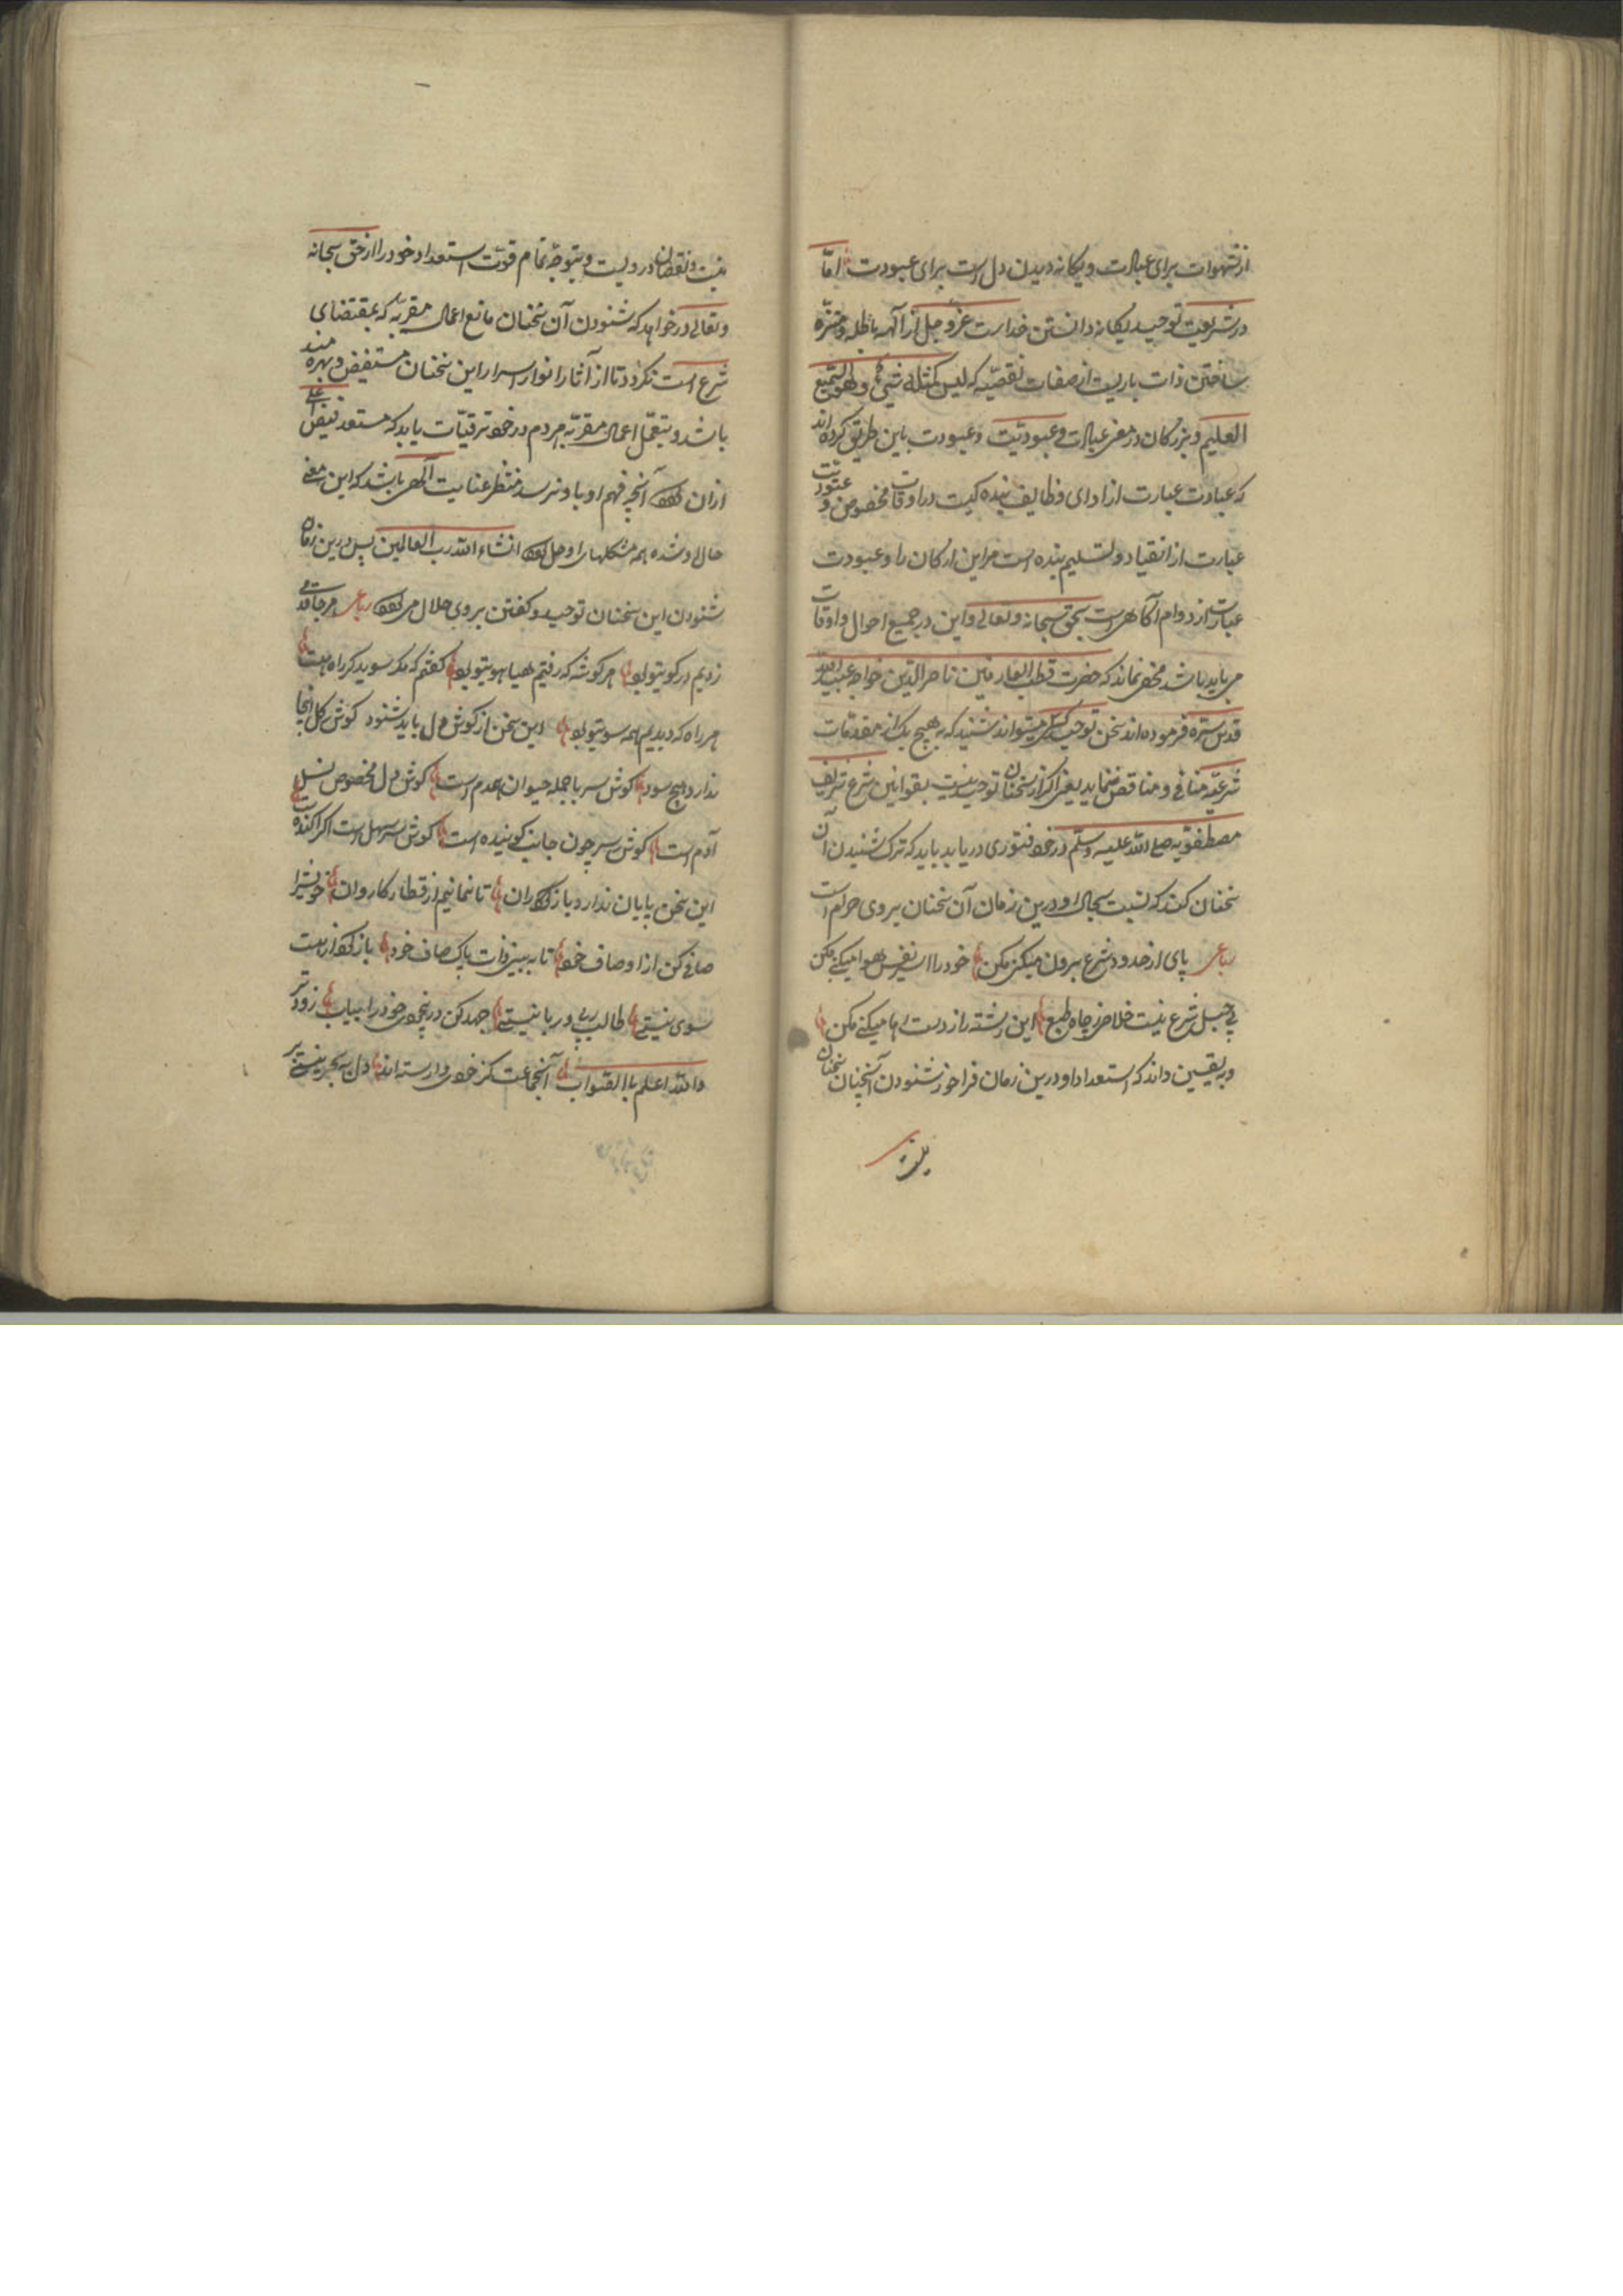 از شهوات برای عبادت و یکانه دیدن دل است برای عبودت امّا
در شریعت توحید یکانه دانستن خداست عزّ و جل از آلهه باطله و منزّه
ساختن ذات باریست از صفات نقصیّه که لیس کمثله شیئ و هو السّمیع
العلیم و بزرکان در معنی عبادت و عبودیّت و عبودت باین طریق کرده اند
که عبادت عبارت از ادای وظایف بنده کیست در اوقات مخصوص و عبودیّت
عبارت از انقیاد و تسلیم بنده است مر این ارکان را و عبودت
عبارت از دوام آکاهیست بحق سبحانه و تعالی و این در جمیع احوال و اوقات
می باید باشد مخفی نماند که حضرت قطب العارفین ناصر الدّین خواجه عبید الله
قدس سرّه فرموده اند سخن توحید کسی میتواند شنید که به هیچ یک از مقدمات
شرعیّه منافی و مناقض ننماید یعنی اکر از سخنان توحید نسبت بقوانین شرع شریف
مصطفویّه صلی الله علیه و سلّم در خود فتوری دریابد باید که ترک شنیدن آن
سخنان کند که نسبت بحال او درین زمان آن سخنان بر وی حرام است
رباعی پای از حدود شرع برون میکنی مکن خود را اسیر نفس و هوا میکنی مکن
بی حبل شرع نیست خلاصی ز چاه طبع این رشته را ز دست رها میکنی مکن
و به یقین داند که استعداد او درین زمان فراخور شنودن آنچنان سخنان
نیست
نیست و نقصان در ویست و بتوجّه تمام قوّت استعداد خود را از حق سبحانه
و تعالی در خواهد که شنودن آن سخنان مانع اعمال مقربه که بمقتضای
شرع است نکردد تا از آثار انوار اسرار این سخنان مستفیض و بهره مند
باشد و بتعمّل اعمال مقرّبه هر دم در خود ترقیّات یابد که مستعد فیض اعلی
از ان شود آنچه فهم او باو نرسد منتظر عنایت آلهی باشد که این معنی
حال او شده همه مشکلهای او حل شود انشاء الله رب العالمین پس درین زمان
شنودن این سخنان توحید و کفتن بر وی حلال می شود رباعی هر جا قدمی
زدیم در کوی تو بود هر کوشه که رفتیم هیاهوی تو بود کفتم که مکر سوی دکر راه هست
هر راه که دیدیم همه سوی تو بود این سخن از کوش دل باید شنود کوش کل اینجا
ندارد هیچ سود کوش سر با جمله حیوان همدم است کوش دل مخصوص نسل
آدم است کوش سر چون جانب کوینده است کوش سر سهل است اکر آکنده است
این سخن پایان ندارد باز ران تا نمانیم از قطار کاروان خویش را
صافی کن از اوصاف خود تا به بینی ذات پاک صاف خود باز کرد از هست
سوی نیستی طالب ربی و ربانیستی جهد کن در بیخودی خود را بیاب زودتر
والله اعلم باالصّواب آنجماعت کز خودی وارسته اند دل به بحر نیستی